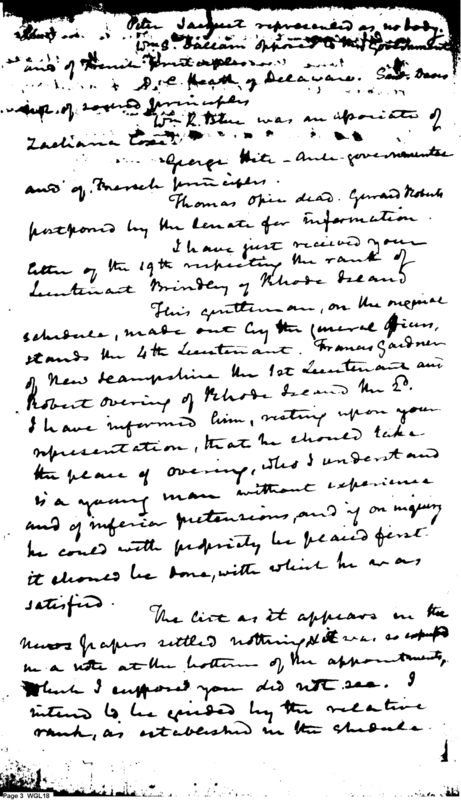 Peter Jaquet represented as nobody.
Wm S. Dallam opposed to the Government
and of French principles
D. C. Heath of Delaware. Said Davis
not of sound principles
Wm K. Blue was an associate of
Zachariah Coxe.
George Hite - Anti-governmentee
and of French principles.
Thomas Opie dead. Gerard Roberts
postponed by the Senate for information.
I have just received your
letter of the 19th respecting the rank of
Lieutenant Brindley of Rhode Island
This gentleman, on the original
schedule, made out by the general officers,
stands the 4th Lieutenant. Francis Gardner
of New Hampshire the 1st Lieutenant and
Robert Overing of Rhode Island the 2d.
I have informed him, resting upon your
representation, that he should take
the place of Overing, who I understand
is a young man without experience
and of inferior pretensions, and if on inquiry
he could with propriety be placed first
it should be done, with which he was
satisfied.
The list as it appears in the
news papers settled nothing & it was so
in a note at the bottom of the appointments,
which I supposed you did not see. I
intend to be guided by the relative
rank, as established in the shedule.
Page 3 WGL18